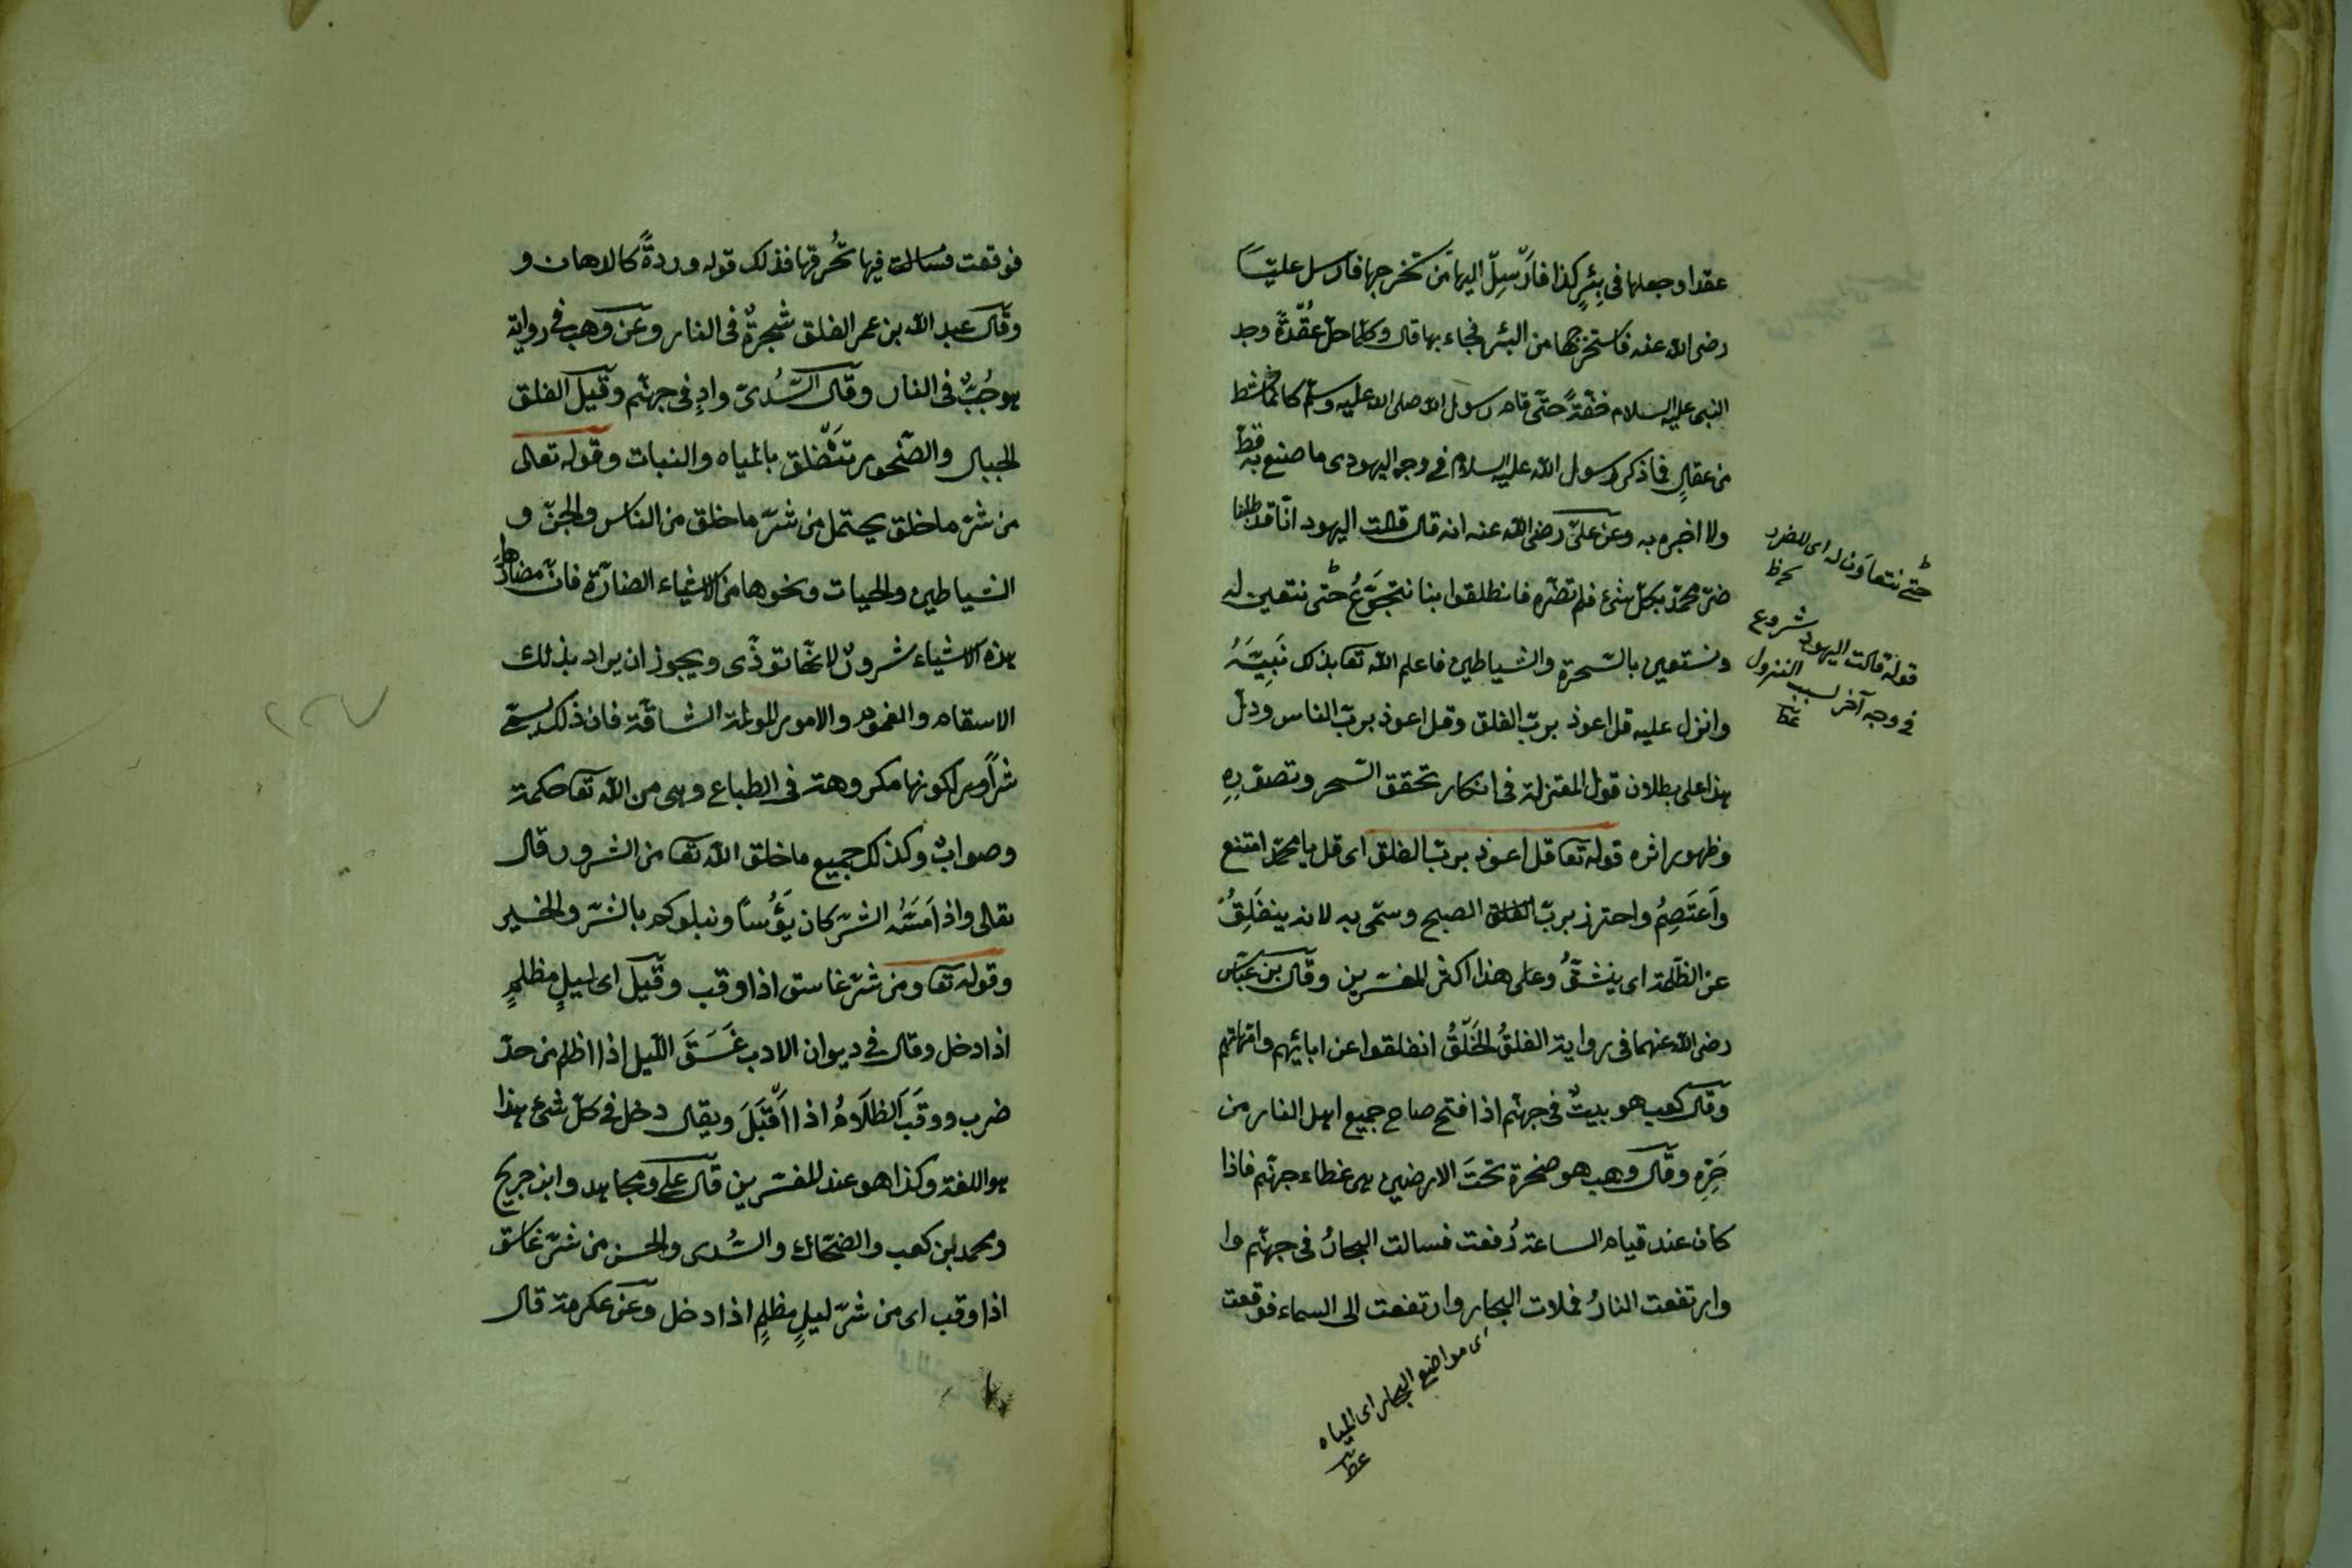 عقدا وجعلها فى بئرٍ كذا فارسِل اليها من تخرجها فارسل عليّا
رضى الله عنه فاستخرجها من البئر فجاء بها قال وكلّما حلّ عُقدةً وجد
النبى عليه السلام خفّةً حتّى قام رسول الله صلى الله عليه وسلم كانما نشط
من عقالٍ فما ذكر رسول الله عليه السلام فى وجه اليهودى ما صنع به قطّ
ولا اخبره به وعن علىّ رضى الله عنه انه قال قالت اليهود انّا قد طلبنا
ضرّ محمّد بكلّ شئ فلم تضرّه فانطلقوا بنا نتجوّع حتّى نتعين له
ونستعين بالسّحرة والشياطين فاعلم الله تعا بذلك نبيّه
وانزل عليه قل اعوذ بربّ الفلق وقل اعوذ بربّ الناس ودلّ
هذا على بطلان قول المعتزلة فى انكار تحقق السّحر وتصوّره
وظهور اثره قوله تعا قل اعوذ بربّ الفلق اى قل يا محمّد امتنع
وأعتصِمُ واحترز بربّ الفلق الصبح وسمّى به لانه ينفلقُ
عن الظّلمة اى ينشقّ وعلى هذا اكثر المفسّرين وقال بن عبّاس
رضى الله عنهما فى رواية الفلقُ الخَلقُ انفلقوا عن ابائهم وامّهاتهم
وقال كعب هو بيتٌ فى جهنّم اذا فتح صاح جميع اهل النار من
حَرّه وقال وهب هو صخرة تحتَ الارضين هى غطاء جهنّم فاذا
كان عند قيام الساعة رُفعت فسالت البحارُ فى جهنّم وا
وارتفعت النارُ فملات البحار وارتفعت الى السماء فوقعت
اى مواضع البحار اى المياه
حتّى نتعاون له اى للضرر
قوله قالت اليهود شروع
فى وجه آخر لسبب النزول
فوقعت فسالت فيها تحُرقها فذلك قوله وردةً كالدهان و
وقال عبد الله بن عمر الفلق شجرةٌ فى النار وعن وهب فى رواية
هو جُبٌّ فى النار وقال السّدىّ وادٍ فى جهنّم وقيل الفلق
الجبال والصّخور تتفلق بالمياه والنبات وقوله تعالى
من شرّ ما خلق يحتمل من شرّ ما خلق من الناس والجنّ و
الشياطين والحيات ونحوها من الاشياء الضارّة فانّ مضارّ
هذه الاشياء شرورٌ لانّها توذّى ويجوز ان يراد بذلك
الاسقام والغموم والامور المولمة الشاقّة فان ذلك يسمّى
شراً وسراً لكونها مكروهة فى الطباع وهى من الله تعا حكمة
وصوابٌ وكذلك جميع ما خلق الله تعا من الشرور قال
تعالى واذا مَسّهُ الشرّ كان يؤُسًا ونبلوكم بالشرّ والخير
وقوله تعا ومن شرّ غاسق اذا وقب وقيل اى ليلٍ مظلمٍ
اذا دخل وقال فى ديوان الادب غَسَقَ اللّيل اذا اظلم من حدّ
ضرب ووقَبَ الظلامُ اذا اقبَلَ ويقال دخل فى كلّ شئ هذا
هو اللغة وكذا هو عند المفسّرين قال على ومجاهد وابن جريج
ومحمد بن كعب والضحّاك والسُّدى والحسن من شرّ غاسق
اذا وقب اى من شرّ ليلٍ مظلمٍ اذا دخل وعن عكرمة قال